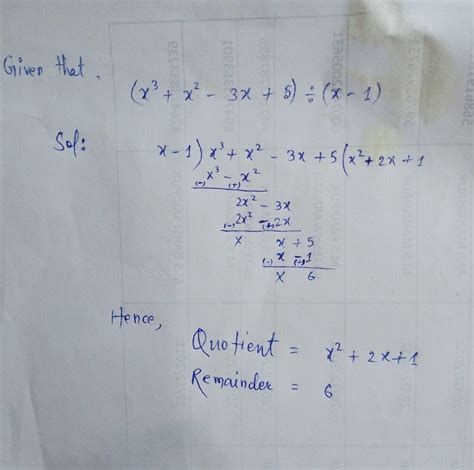 Given that,
(x³ + x² - 3x + 5) ÷ (x - 1)
Sol:
x - 1) x³ + x² - 3x + 5 (x² + 2x + 1
x³ - x²
(-) (+)
2x² - 3x
2x² - 2x
(-) (+)
x x + 5
x - 1
(-) (+)
x 6
Hence,
Quotient = x² + 2x + 1
Remainder = 6